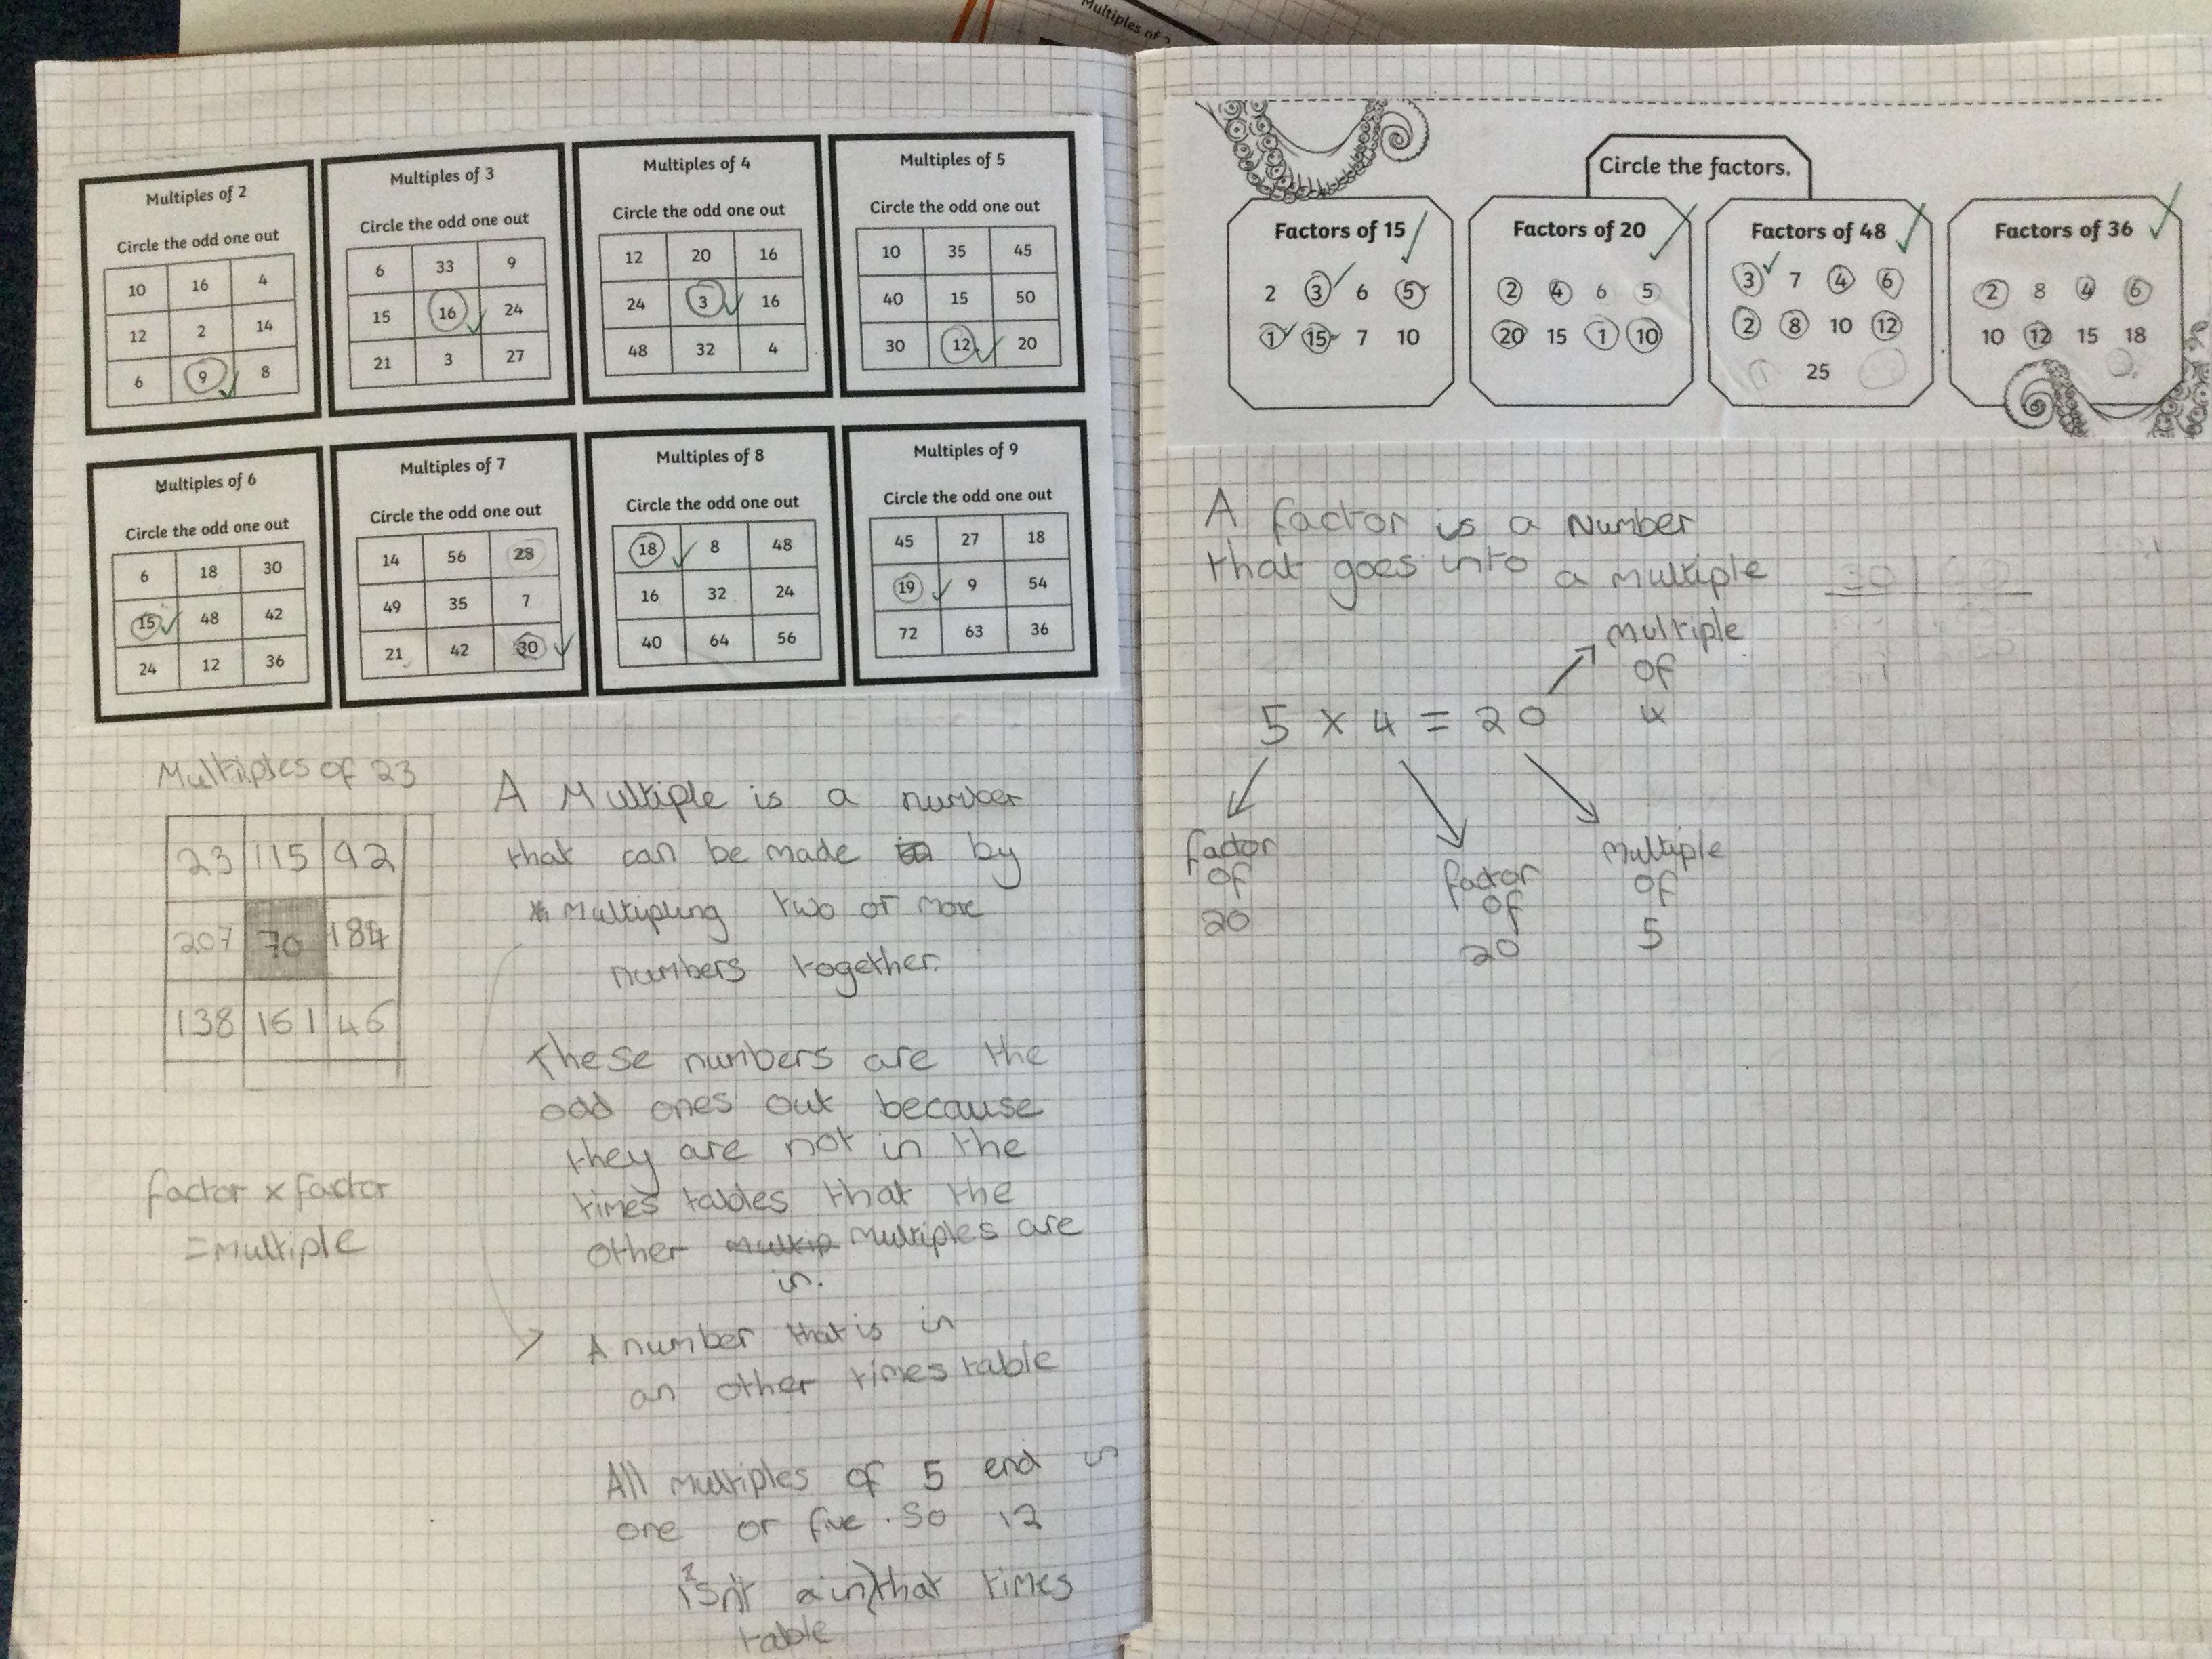 Multiples of 2
Circle the odd one out
10 16 4
12 2 14
6 9 8
Multiples of 3
Circle the odd one out
6 33 9
15 16 24
21 3 27
Multiples of 4
Circle the odd one out
12 20 16
24 3 16
48 32 4
Multiples of 5
Circle the odd one out
10 35 45
40 15 50
30 12 20
Multiples of 6
Circle the odd one out
6 18 30
15 48 42
24 12 36
Multiples of 7
Circle the odd one out
14 56 28
49 35 7
21 42 30
Multiples of 8
Circle the odd one out
18 8 48
16 32 24
40 64 56
Multiples of 9
Circle the odd one out
45 27 18
19 9 54
72 63 36
Multiples of 23
23 115 92
207 70 184
138 161 46
factor x factor
= multiple
A Multiple is a number
that can be made by
Multipling two or more
numbers together.
These numbers are the
odd ones out because
they are not in the
times tables that the
other multip multiples are
in.
A number that is in
an other times table
All multiples of 5 end in
one or five. So 12
isn't in that times
table
Multiples of
Circle the factors.
Factors of 15
2 3 6 5
1 15 7 10
Factors of 20
2 4 6 5
20 15 1 10
Factors of 48
3 7 4 6
2 8 10 12
25
Factors of 36
2 8 4 6
10 12 15 18
A factor is a Number
that goes into a multiple
30
multiple
of
4
5 x 4 = 20
factor
of
20
factor
of
20
Multiple
of
5